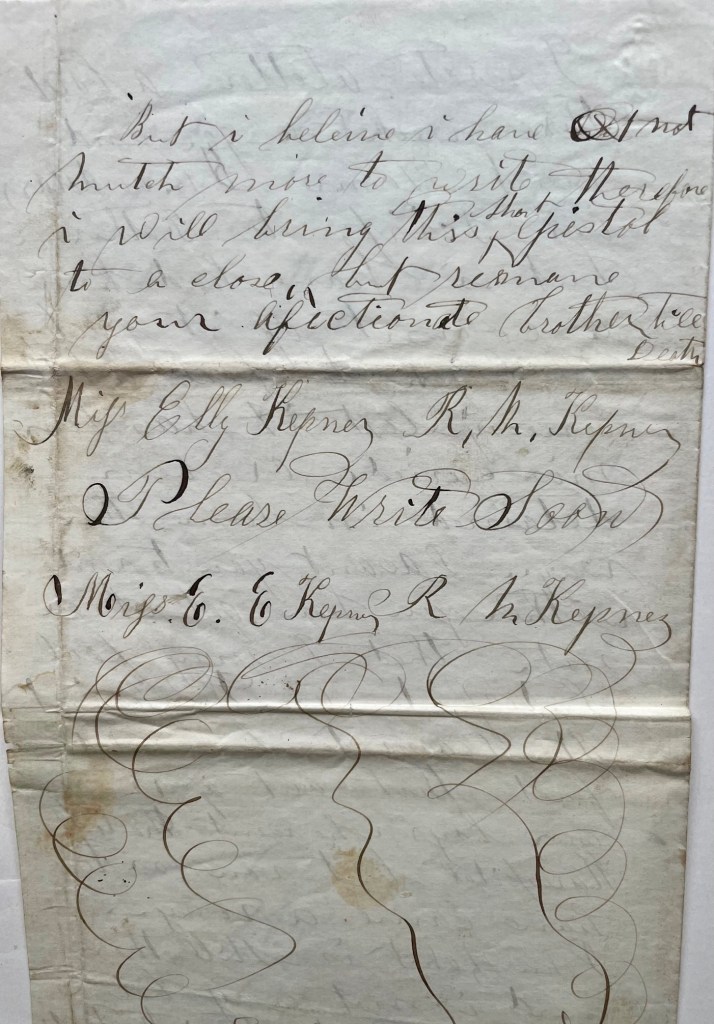 But i beleive i have not
mutch more to write, therefore
i will bring this, short, Epistol
to a close, but remane
your afectionate brother till
Death
Miss Elly Kepner R, M, Kepner
Please Write Soon
Miss. E. E Kepner R M Kepner